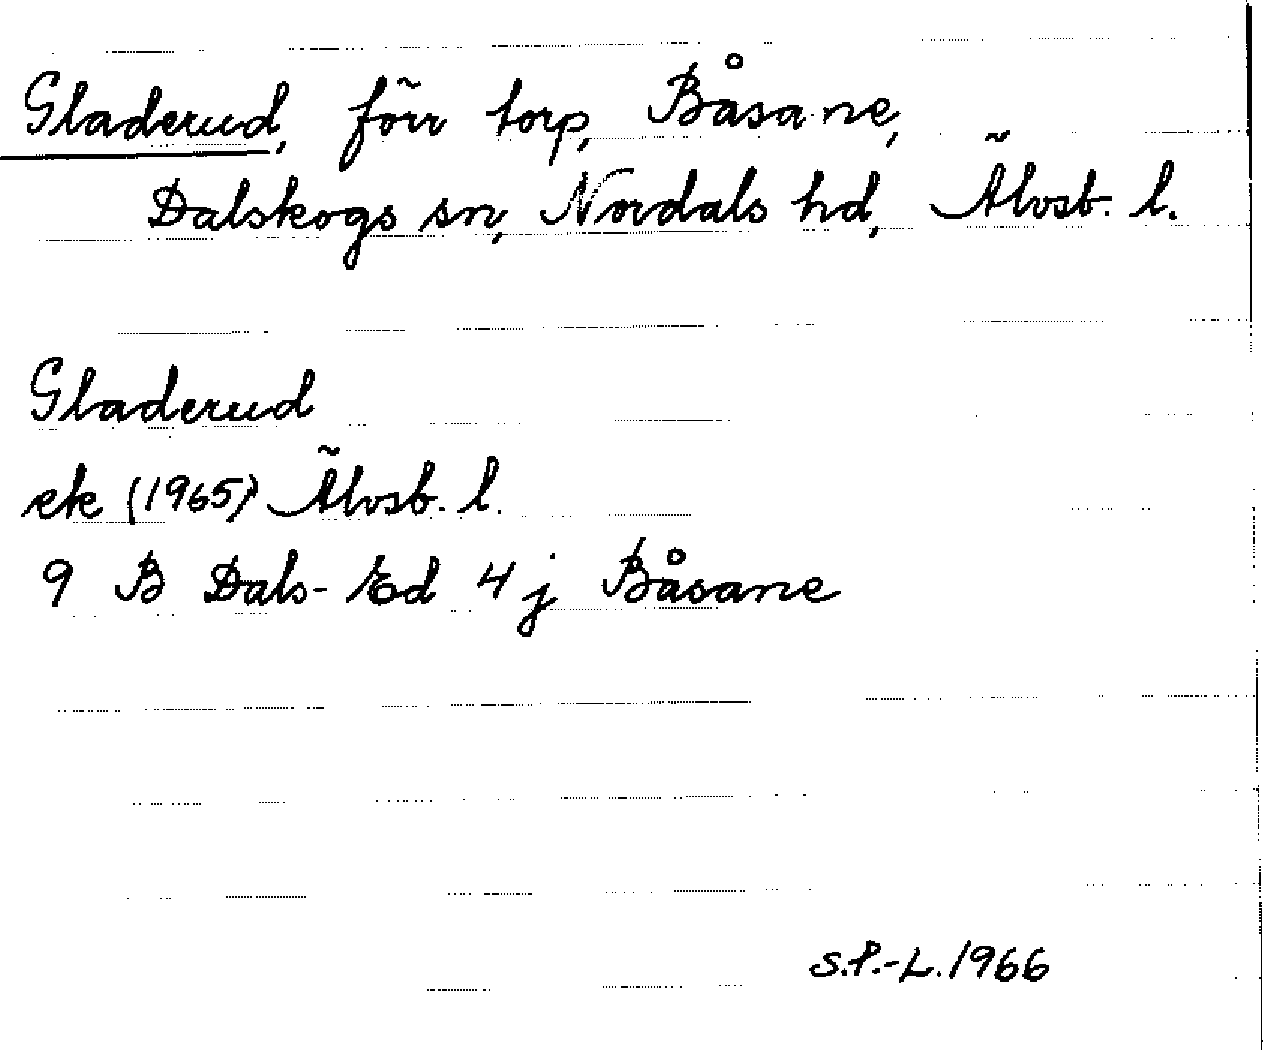 Gladerud, förr torp, Båsane,
Dalskogs sn, Nordals hd, Älvsb. l.
Gladerud
ek (1965) Älvsb. l.
9 B Dals-Ed 4 j Båsane
S.P.-L. 1966